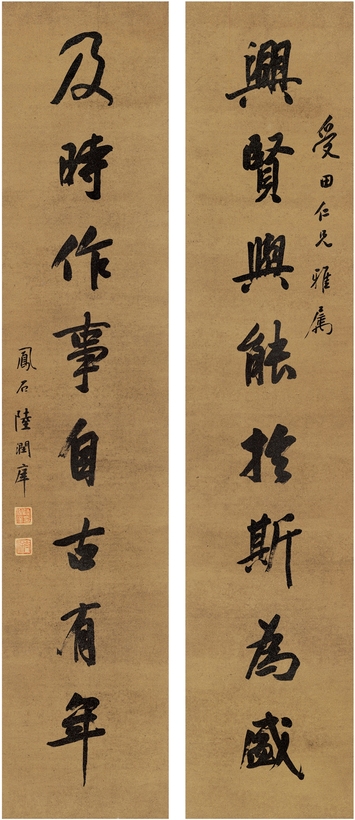 受田仁兄雅属
興賢興能於斯為盛
及時作事自古有年
鳳石陸潤庠